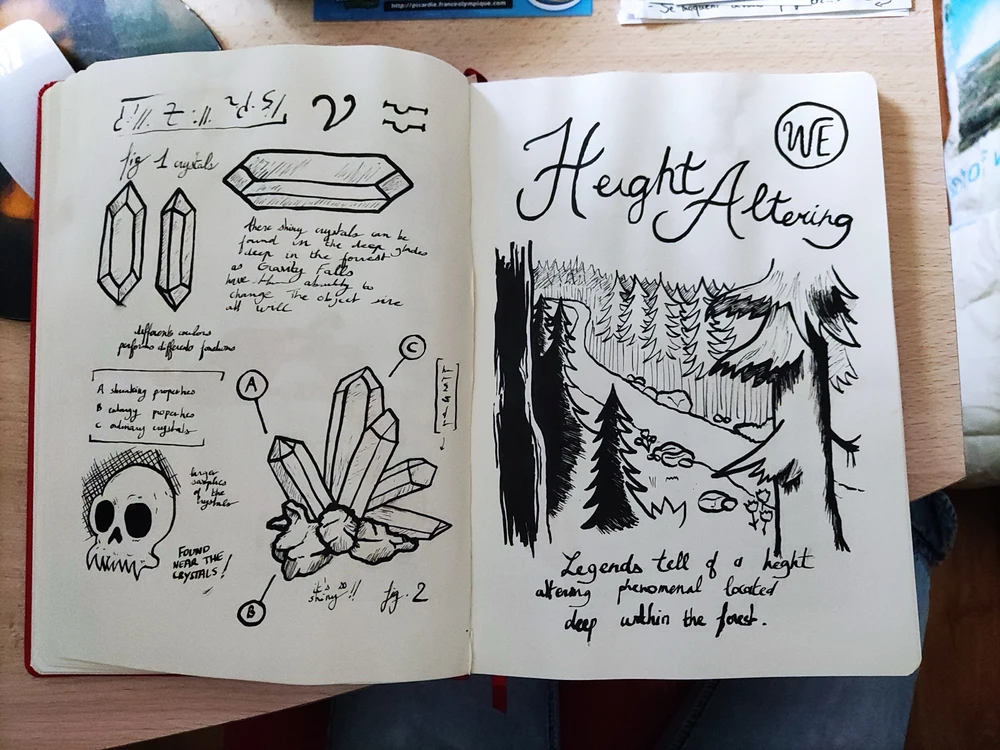 http://picardie.franceolympique.com
fig 1 crystals
these shiny crystals can be
found in the deep glades
deep in the forrest
as Gravity Falls
have the abbility to
change the object size
at will
differents coulors
performs differents functions
A shrinking properties
B enlargy properties
C ordinary crystals
larger
samples
of the
crystals
FOUND
NEAR THE
CRYSTALS!
A
B
C
it's so
shiny!!
fig. 2
WE
Height Altering
Legends tell of a height
altering phenomenal located
deep within the forest.